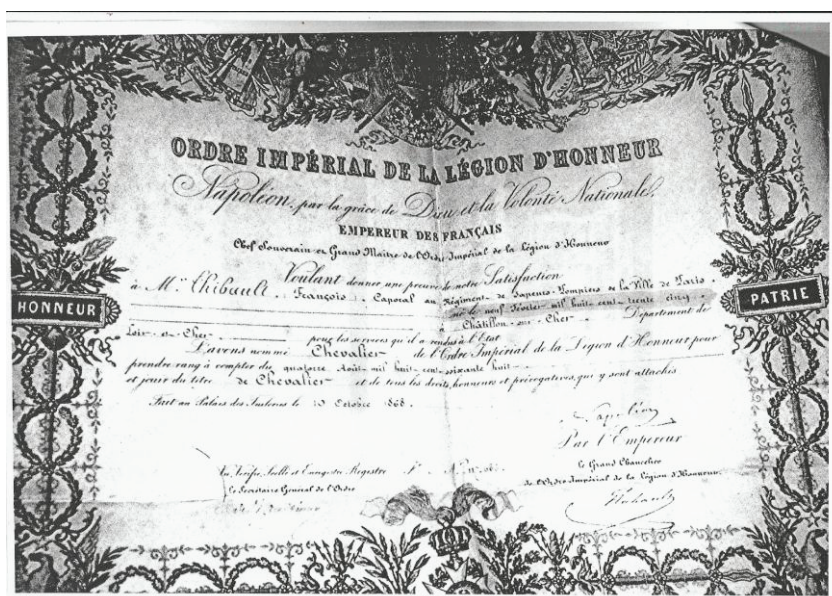 ORDRE IMPÉRIAL DE LA LÉGION D'HONNEUR
Napoléon, par la grâce de Dieu et la Volonté Nationale,
EMPEREUR DES FRANÇAIS
Chef Souverain et Grand Maître de l'Ordre Impérial de la Légion d'Honneur
Voulant donner une preuve de notre Satisfaction
à Mr. Thibault : François : Caporal au Régiment de Sapeurs-Pompiers de la Ville de Paris
né le neuf Février mil huit cent trente cinq
à Châtillon-sur-Cher Département de
Loir-et-Cher pour les services qu'il a rendus à l'Etat
L'avons nommé Chevalier de l'Ordre Impérial de la Légion d'Honneur pour
prendre rang à compter du quatorze Août mil huit cent soixante huit
et jouir du titre de Chevalier et de tous les droits, honneurs et prérogatives, qui y sont attachés
Fait au Palais des Tuileries le 10 Octobre 1868.
HONNEUR
PATRIE
Par l'Empereur
Le Grand Chancelier
de l'Ordre Impérial de la Légion d'Honneur.
Vu, Vérifié, Scellé et Enregistré Registre
Le Secrétaire Général de l'Ordre